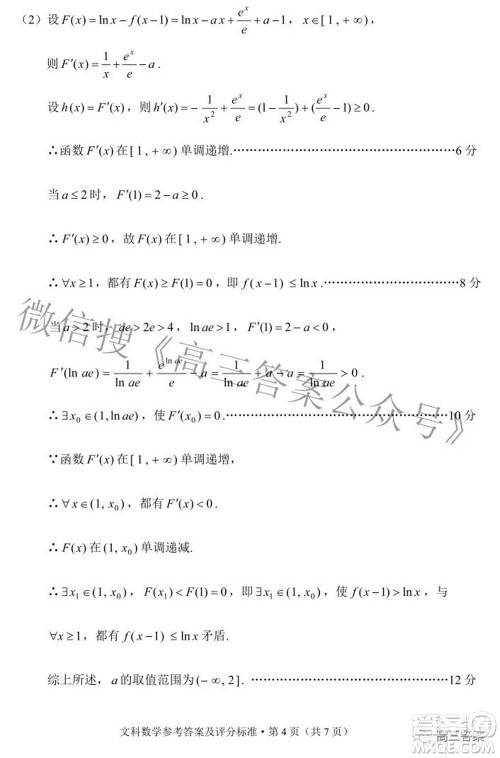 （2）设 F(x)=ln x−f(x−1)=ln x−ax+e^x/e+a−1，x∈[1,+∞)，
则 F′(x)=1/x+e^x/e−a.
设 h(x)=F′(x)，则 h′(x)=−1/x²+e^x/e=(1−1/x²)+(e^x/e−1)≥0.
∴函数 F′(x) 在[1,+∞) 单调递增.……………………………………………6 分
当 a≤2 时，F′(1)=2−a≥0.
∴ F′(x)≥0，故 F(x) 在[1,+∞) 单调递增.
∴ ∀x≥1，都有 F(x)≥F(1)=0，即 f(x−1) ≤ln x.……………………………8 分
当 a>2 时，ae>2e>4，ln ae>1，F′(1)=2−a<0，
F′(ln ae)=1/ln ae+e^{ln ae}/e−a=1/ln ae+a−a=1/ln ae>0.
∴ ∃x₀∈(1,ln ae)，使 F′(x₀)=0.……………………………………………10 分
∵函数 F′(x) 在[1,+∞) 单调递增，
∴ ∀x∈(1, x₀)，都有 F′(x)<0.
∴ F(x) 在 (1, x₀) 单调递减.
∴ ∃x₁∈(1, x₀)，F(x₁)<F(1)=0，即 ∃x₁∈(1, x₀)，使 f(x−1)>ln x，与
∀x≥1，都有 f(x−1) ≤ln x 矛盾.
综上所述，a 的取值范围为(−∞, 2]. ……………………………………12 分
文科数学参考答案及评分标准·第 4 页（共 7 页）
微信搜《高三答案公众号》
高三答案